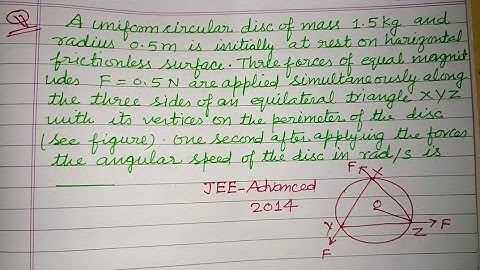 Q A uniform circular disc of mass 1.5 kg and
radius 0.5 m is initially at rest on horizontal
frictionless surface. Three forces of equal magnit
udes F = 0.5 N are applied simultaneously along
the three sides of an equilateral triangle XYZ
with its vertices on the perimeter of the disc
(see figure). One second after applying the forces
the angular speed of the disc in rad/s is
JEE-Advanced
2014
F X
O
Y Z F
F